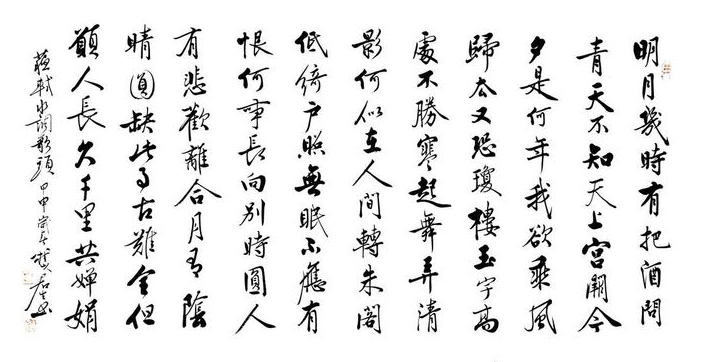 明月幾時有把酒問
青天不知天上宮闕今
夕是何年我欲乘風
歸去又恐瓊樓玉宇高
處不勝寒起舞弄清
影何似在人間轉朱閣
低綺户照無眠不應有
恨何事長向別時圓人
有悲歡離合月有陰
晴圓缺此事古難全但
願人長久千里共嬋娟
蘇軾水調歌頭甲申歲